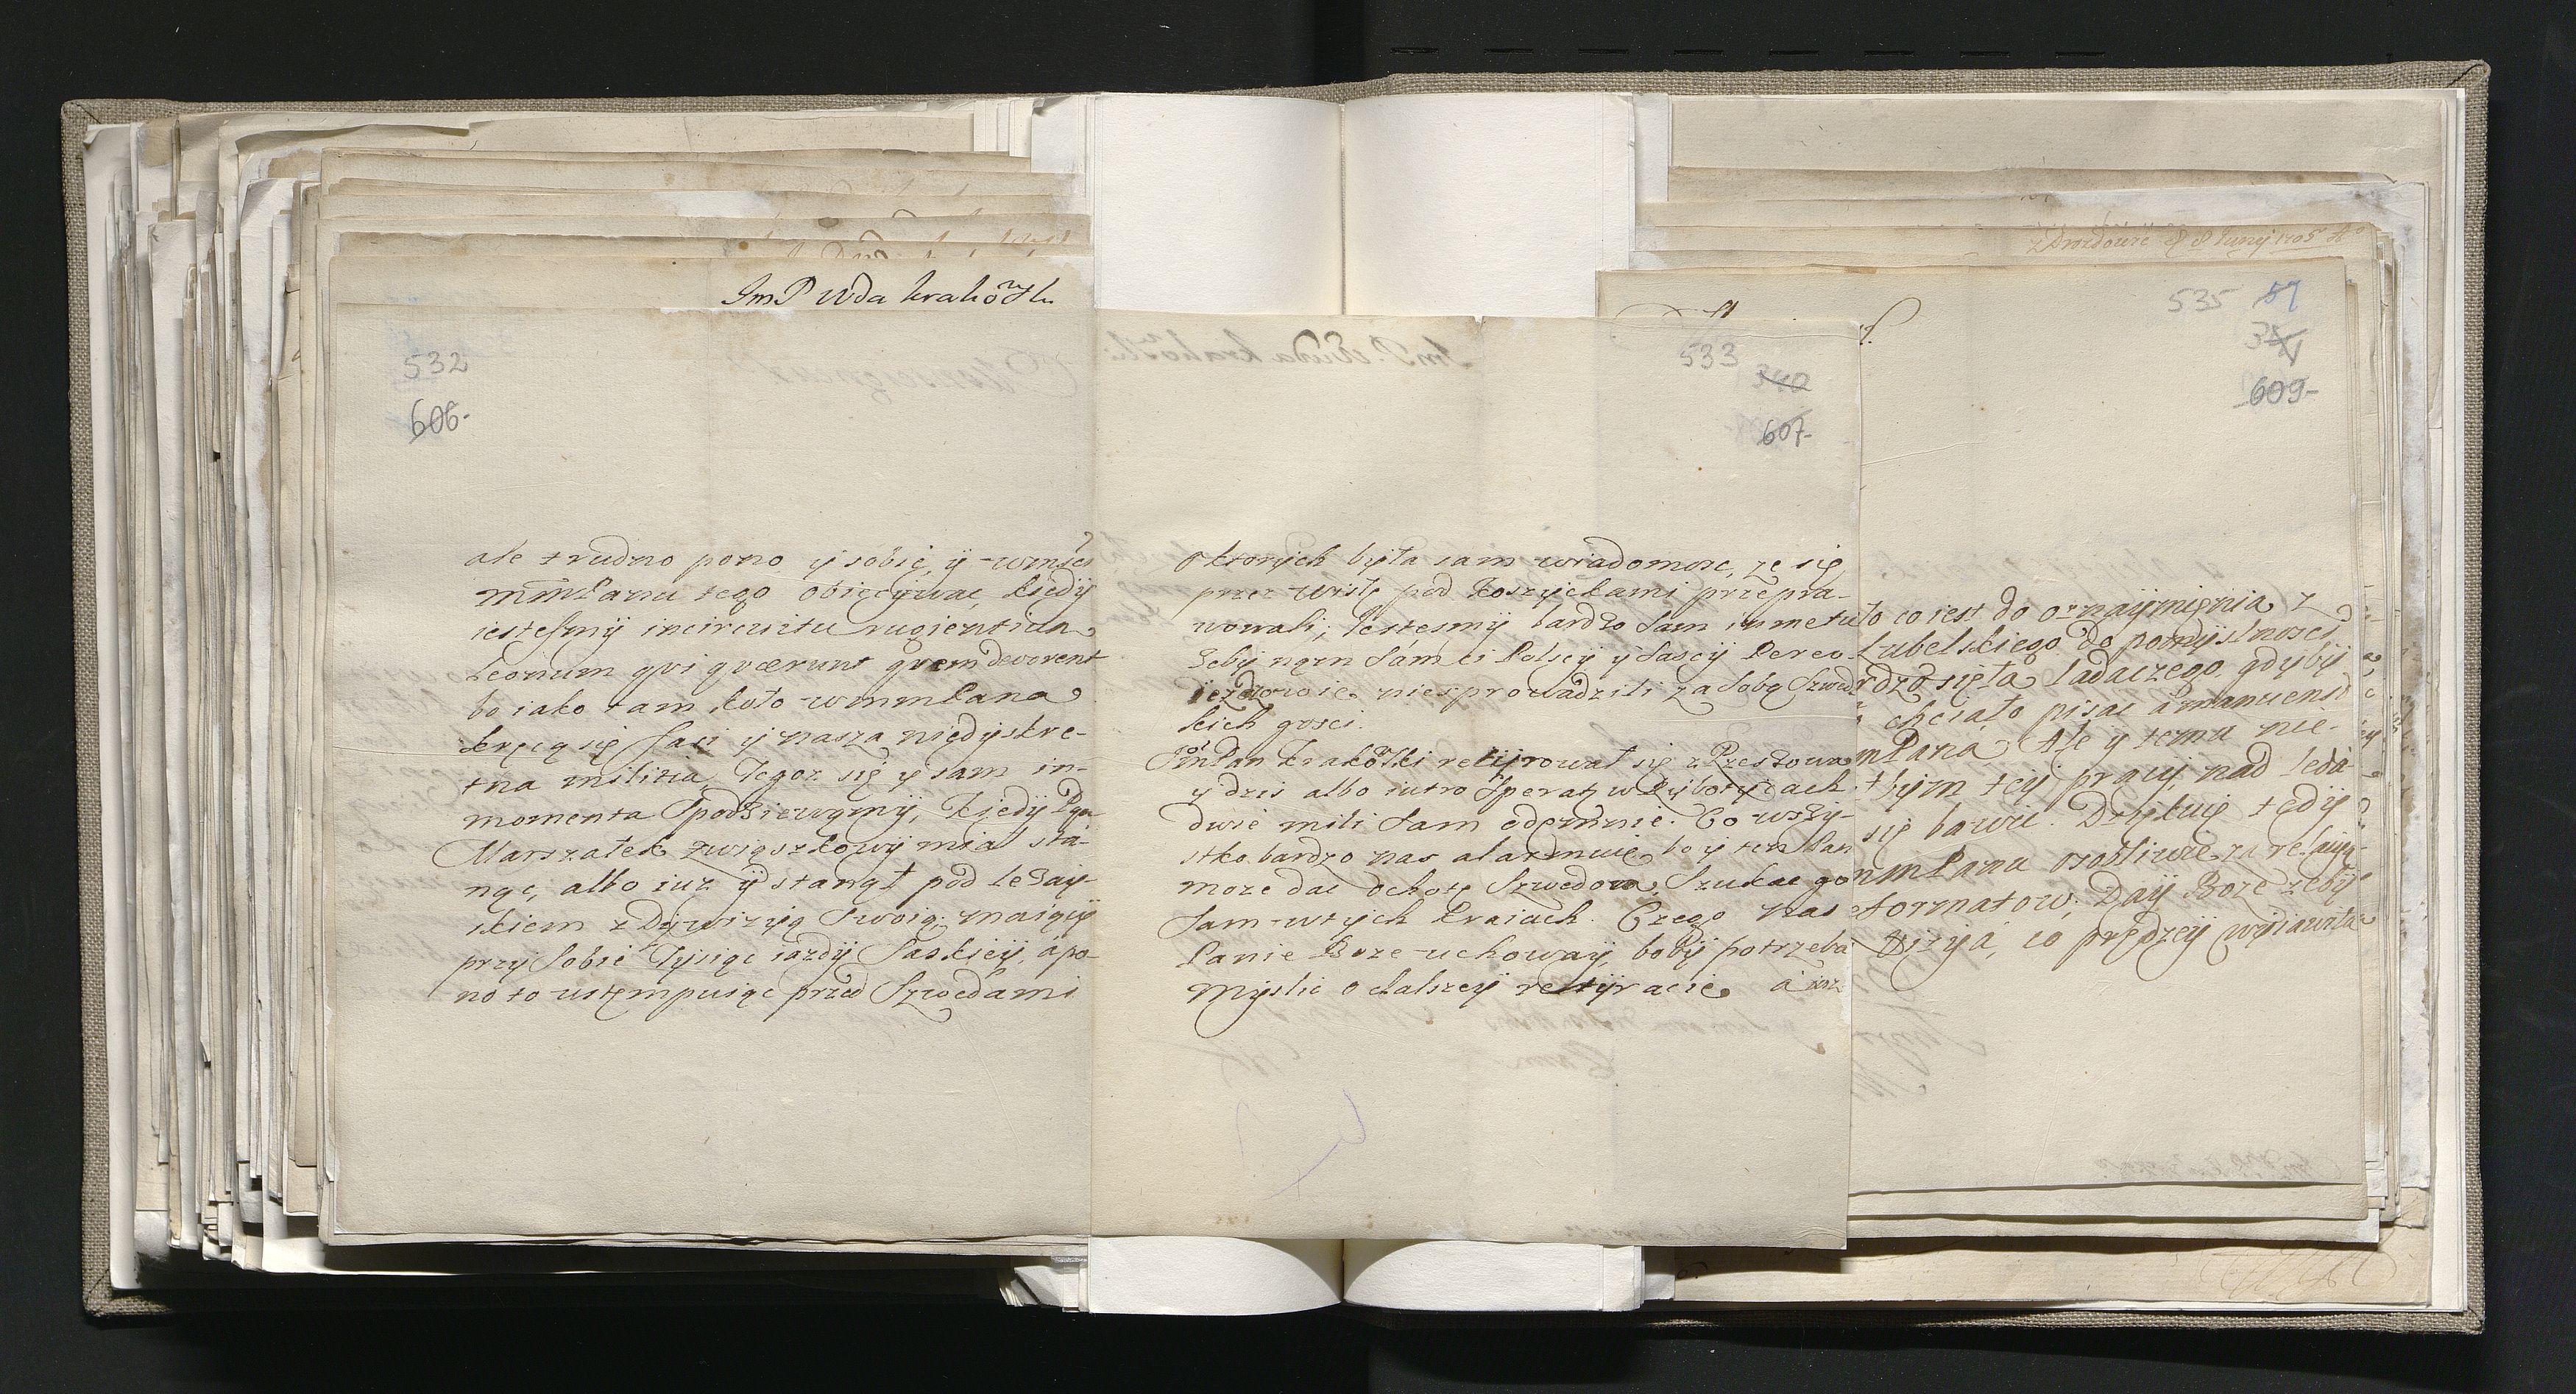 ImP Wda krakoski
532
606-
ale trudno pono y sobie, y wmści
mmPanu tego obiecywac, kiedy
iestesmy incircuitu rugientium
Leonum qvi qværunt qvem devorent
bo iako tam koło wmmPana
kręcą się Sasi y nasza niedyskre-
tna militia, Tegoz się y sam in-
momenta spodziewamy, Kiedy Pan
Marszałek związkowy miał sta-
nąć, albo iuz y stanął pod Leżay-
skiem z Dywizyią swoią, maiący
przy sobie Tysiąc iazdy Saskiey, a po-
no to ustempuiąc przed Szwedami
533
340
607-
o ktorych była sam wiadomosc, ze się
przez Wisłę pod Koszyckami przepra-
wowali; Iestesmy bardzo sam in metu
zeby nam sam ci Polscy y Sascy
niesprowadzili za sobą Szwedz
kich gosci.
JmPan Krakoski retyrował się z Rzeszowa
y dzis albo iutro Sperat w Rybotycach
dwie mili sam odemnie. Co wszy-
stko bardzo nas alarmuie, bo y ten Pan
moze dac ochotę Szwedom, Szukac go
sam w tych kraiach. Czego nas
Panie Boze uchoway, boby potrzeba
myslic o dalszey retyracie a iuz
Zdrozdowie 8 Iunij 1705 Ao
535 57
609-
to co iest do oznaymienia z
Lubelskiego do pomyslnosci
ladaczego, gdyby
chciało pisac amanuensi
mPana Ale y temu nie-
tey pracy, nad leda
się bawic. Dziękuię tedy
mmPanu osobliwie za relaryą
formatow; Day Boze zeby
co prędzey wyiawiła